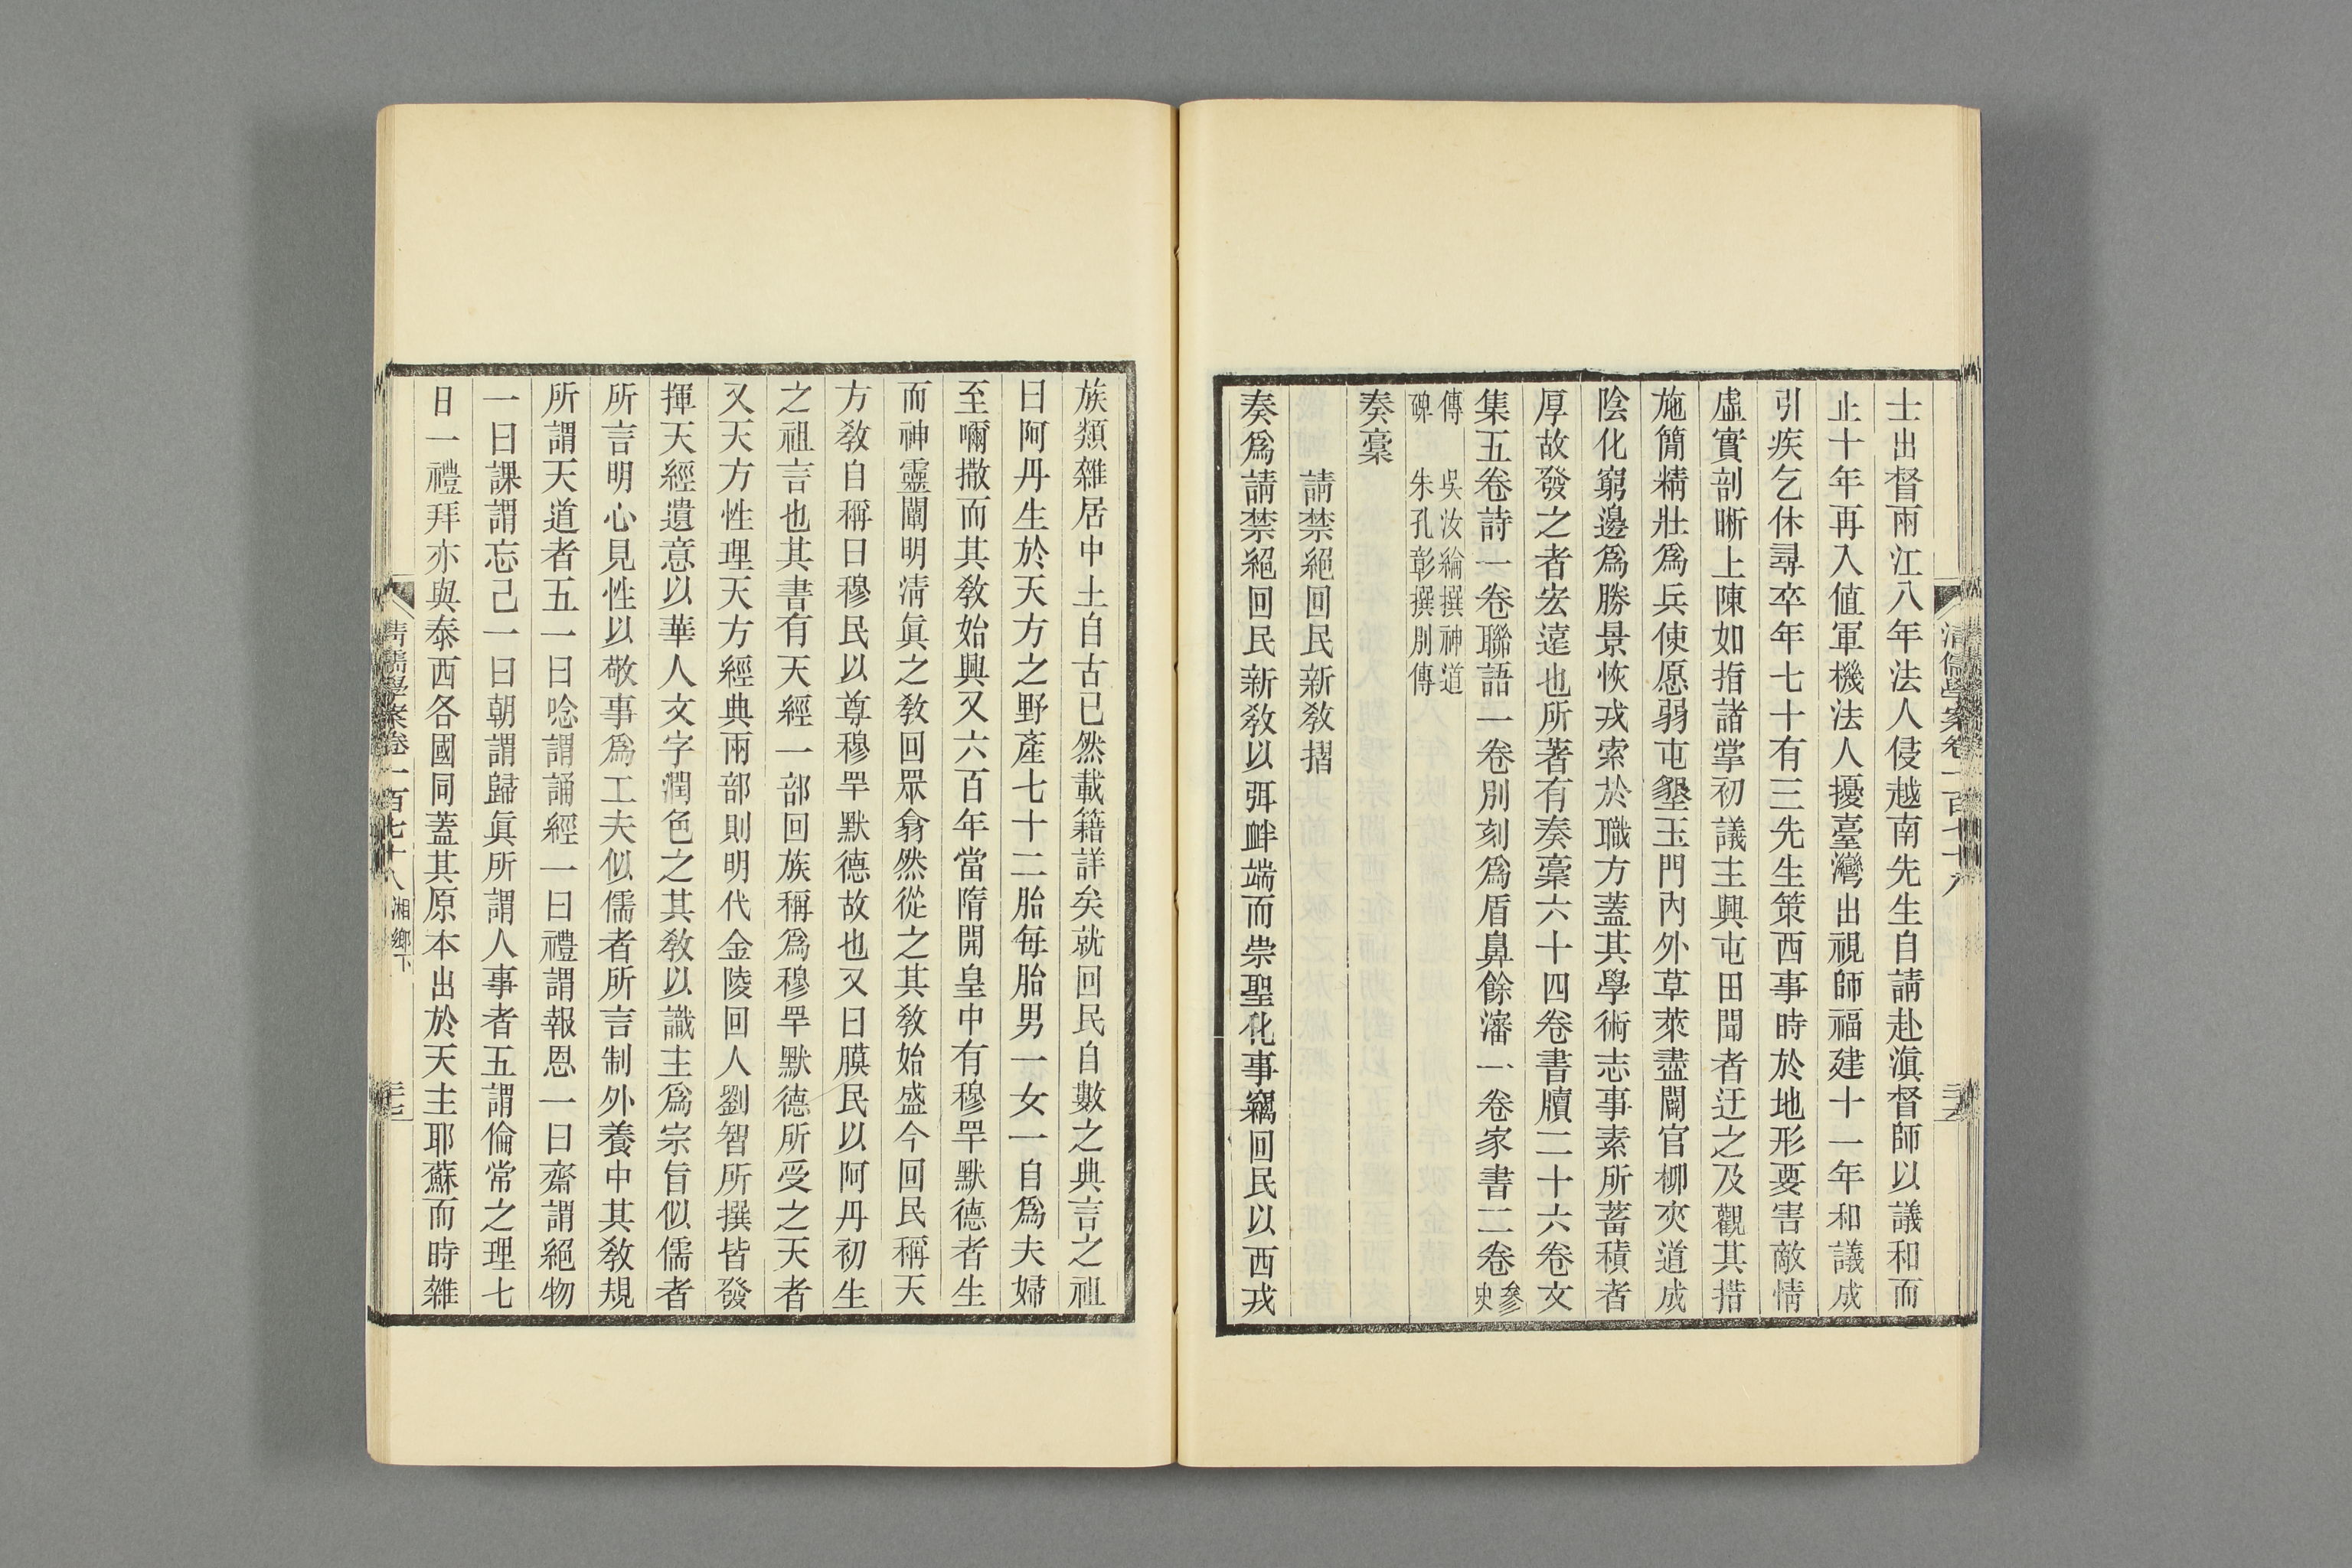 士出督兩江八年法人侵越南先生自請赴滇督師以議和而
止十年再入値軍機法人擾臺灣出視師福建十一年和議成
引疾乞休尋卒年七十有三先生策西事時於地形要害敵情
虛實剖晰上陳如指諸掌初議主興屯田聞者迂之及觀其措
施簡精壯爲兵使愿弱屯墾玉門內外草萊盡闢官柳夾道成
陰化窮邊爲勝景恢戎索於職方蓋其學術志事素所蓄積者
厚故發之者宏遠也所著有奏稾六十四卷書牘二十六卷文
集五卷詩一卷聯語一卷別刻爲盾鼻餘瀋一卷家書二卷參史
傳 吳汝綸撰神道
碑 朱孔彰撰別傳
奏稾
請禁絕回民新敎摺
奏爲請禁絕回民新敎以弭衅端而崇聖化事竊回民以西戎
清儒學案卷一百七十八
族類雜居中土自古已然載籍詳矣就回民自數之典言之祖
曰阿丹生於天方之野產七十二胎每胎男一女一自爲夫婦
至嘞撒而其敎始興又六百年當隋開皇中有穆罕默德者生
而神靈闡明淸眞之敎回眾翕然從之其敎始盛今回民稱天
方敎自稱曰穆民以尊穆罕默德故也又曰膜民以阿丹初生
之祖言也其書有天經一部回族稱爲穆罕默德所受之天者
又天方性理天方經典兩部則明代金陵回人劉智所撰皆發
揮天經遺意以華人文字潤色之其敎以識主爲宗旨似儒者
所言明心見性以敬事爲工夫似儒者所言制外養中其敎規
所謂天道者五一曰唸謂誦經一曰禮謂報恩一曰齋謂絕物
一曰課謂忘己一曰朝謂歸眞所謂人事者五謂倫常之理七
日一禮拜亦與泰西各國同蓋其原本出於天主耶蘇而時雜
清儒學案卷一百七十八 湘鄉下